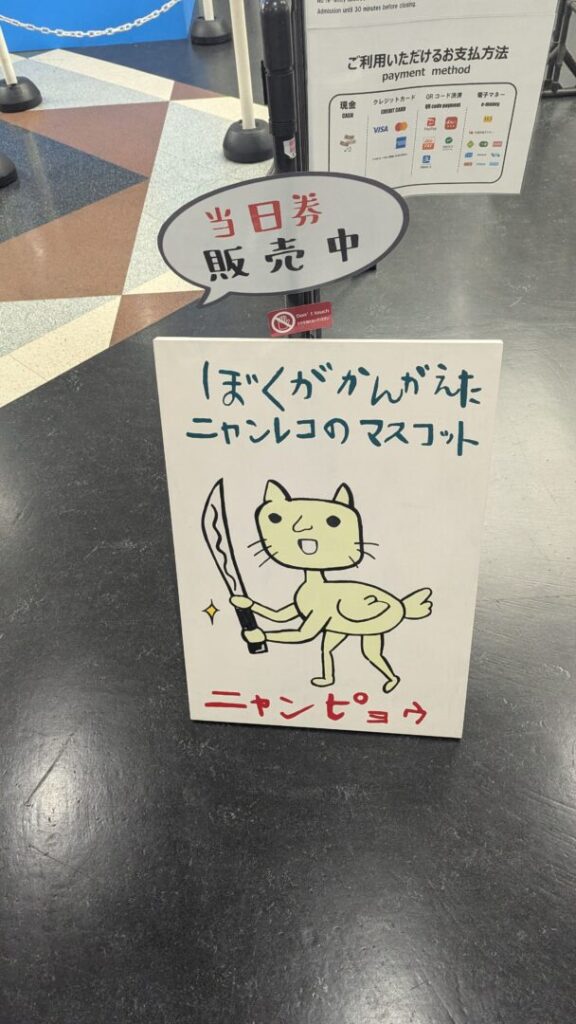 Admission until 30 minutes before closing.
ご利用いただけるお支払方法
payment method
現金
CASH
クレジットカード
CREDIT CARD
QRコード決済
QR code payment
電子マネー
e-money
VISA
当日券
販売中
Don't touch
ぼくがかんがえた
ニャンレコのマスコット
ニャンピョウ